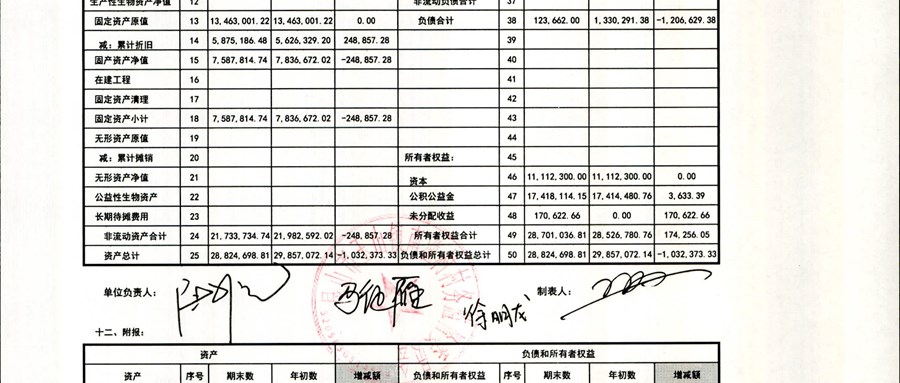 生产性生物资产净值 12 非流动负债合计 37
固定资产原值 13 13,463,001.22 13,463,001.22 0.00 负债合计 38 123,662.00 1,330,291.38 -1,206,629.38
减：累计折旧 14 5,875,186.48 5,626,329.20 248,857.28 39
固产资产净值 15 7,587,814.74 7,836,672.02 -248,857.28 40
在建工程 16 41
固定资产清理 17 42
固定资产小计 18 7,587,814.74 7,836,672.02 -248,857.28 43
无形资产原值 19 44
减：累计摊销 20 所有者权益： 45
无形资产净值 21 资本 46 11,112,300.00 11,112,300.00 0.00
公益性生物资产 22 公积公益金 47 17,418,114.15 17,414,480.76 3,633.39
长期待摊费用 23 未分配收益 48 170,622.66 0.00 170,622.66
非流动资产合计 24 21,733,734.74 21,982,592.02 -248,857.28 所有者权益合计 49 28,701,036.81 28,526,780.76 174,256.05
资产总计 25 28,824,698.81 29,857,072.14 -1,032,373.33 负债和所有者权益总计 50 28,824,698.81 29,857,072.14 -1,032,373.33
单位负责人： 徐明龙 制表人：
十二、附报：
资产 负债和所有者权益
资产 序号 期末数 年初数 增减额 负债和所有者权益 序号 期末数 年初数 增减额